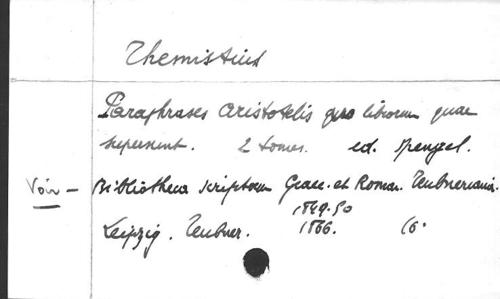 Themistius
Paraphrases Aristotelis librorum quae
supersunt. 2 tomes. ed. Spengel.
Voir - Bibliotheca scriptorum Graec. et Roman. Teubneriana.
1849-50
Leipzig. Teubner. 1866. 16°